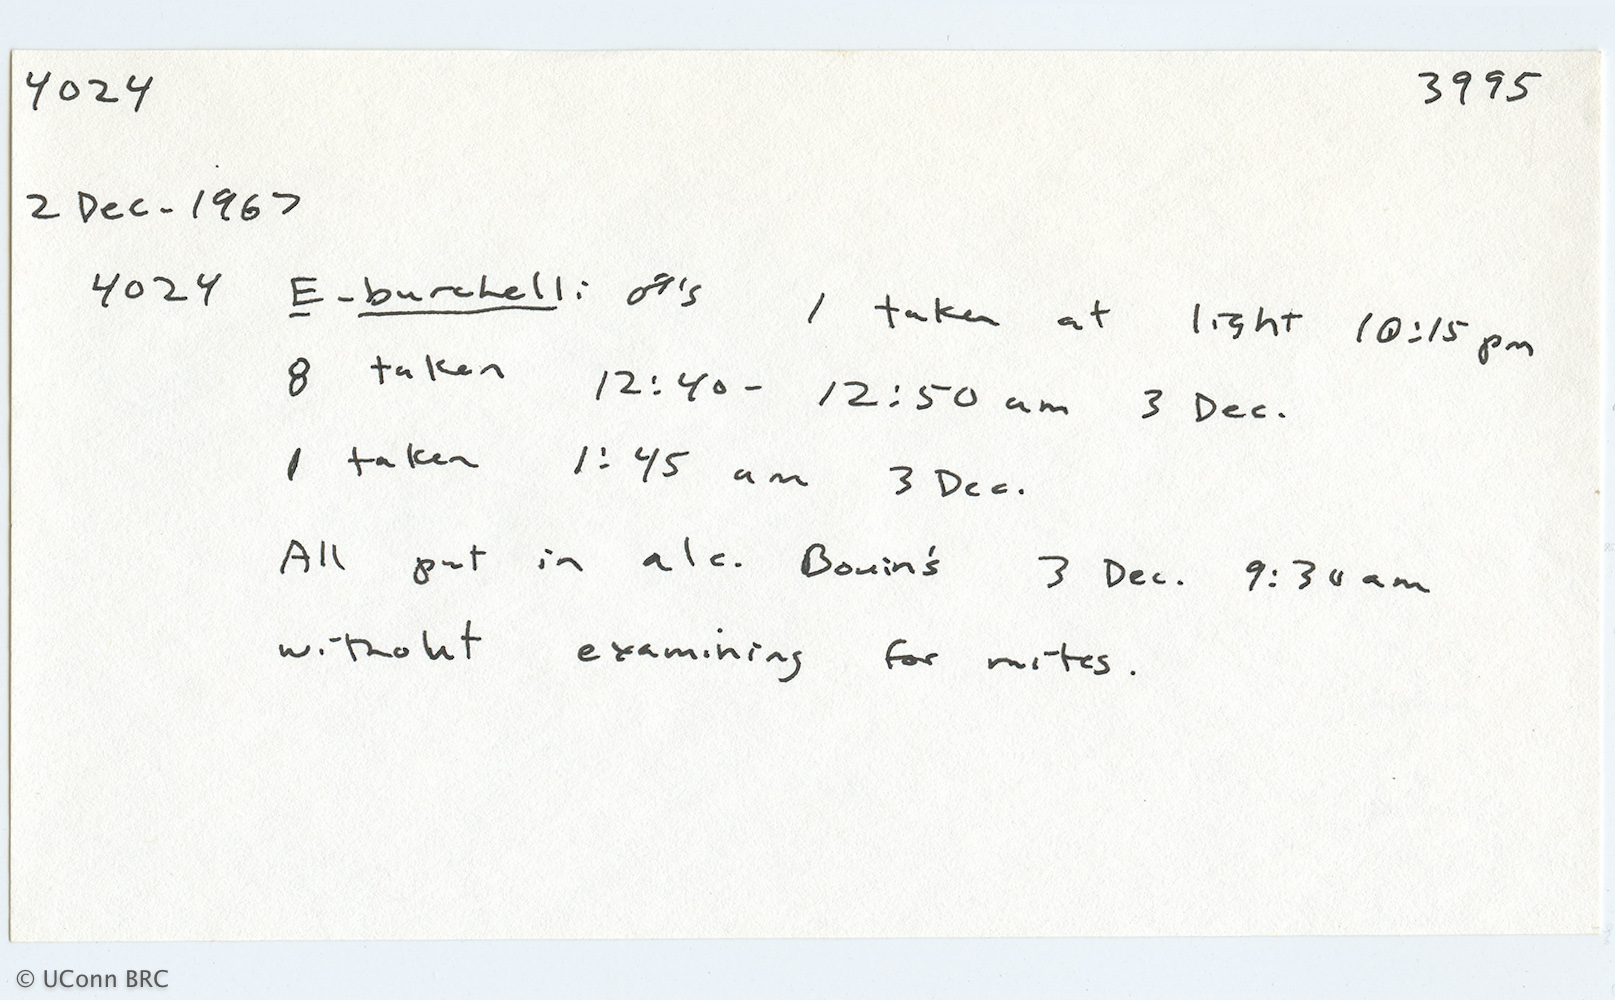 4024 3995
2 Dec. 1967
4024 E. burchelli ♂'s 1 taken at light 10:15 pm
8 taken 12:40 - 12:50 am 3 Dec.
1 taken 1:45 am 3 Dec.
All put in alc. Bouin's 3 Dec. 9:30 am
without examining for mites.
© UConn BRC